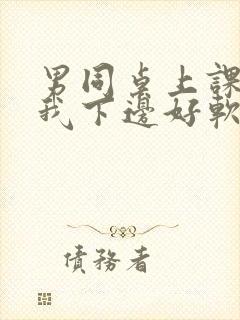 男同桌上課
我下邊好軟
債務者